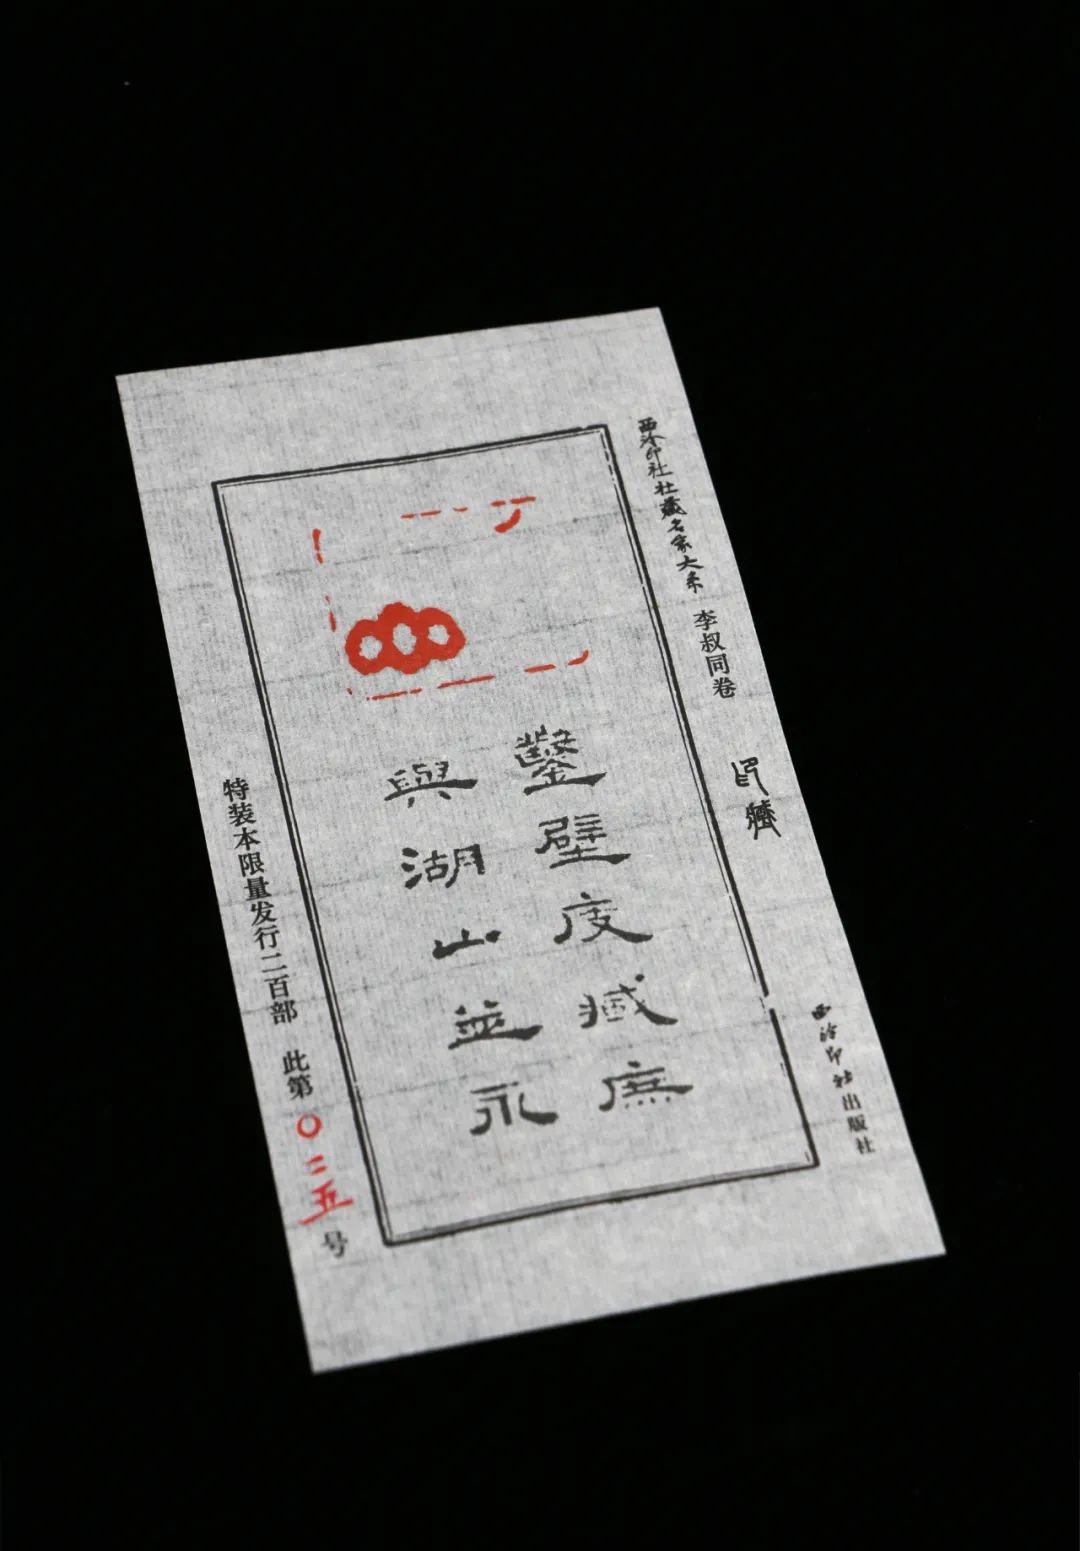 西泠印社社藏名家大系 李叔同卷
印藏
西泠印社出版社
鑿壁庋藏庶
與湖山並永
特装本限量发行二百部 此第〇二五号